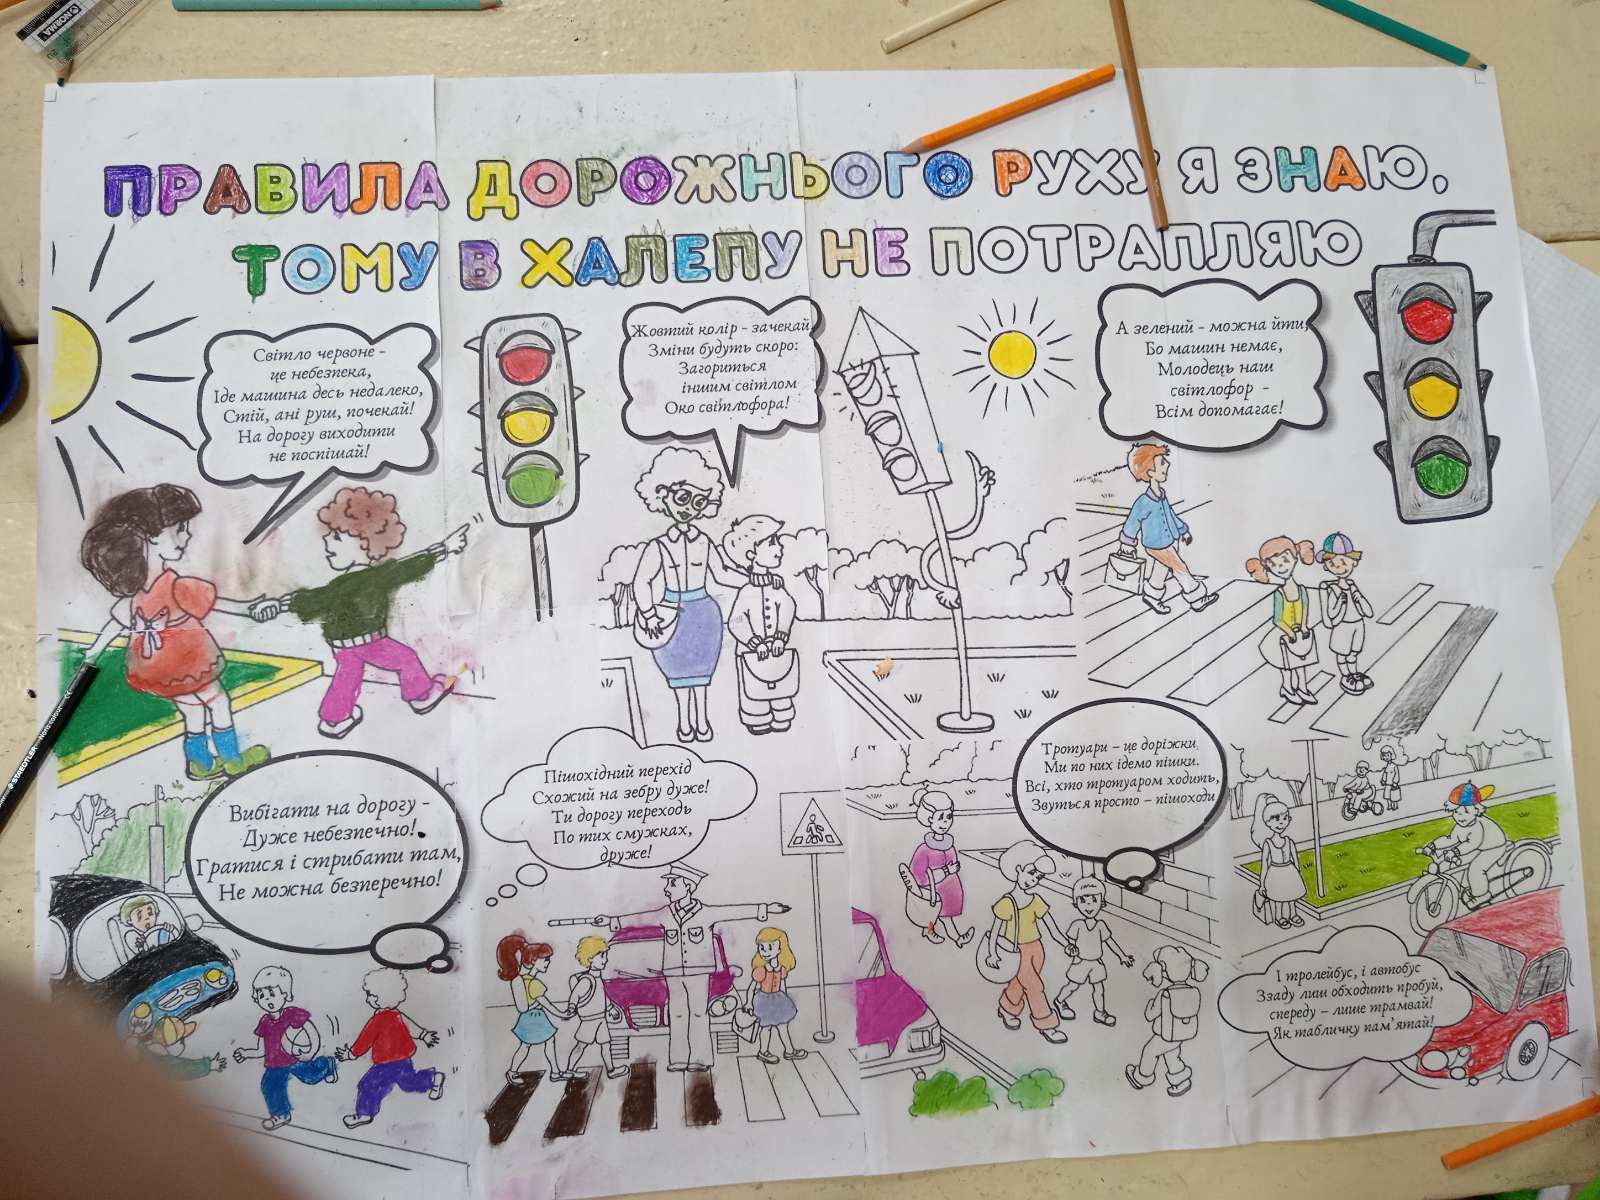 ПРАВИЛА ДОРОЖНЬОГО РУХУ Я ЗНАЮ,
ТОМУ В ХАЛЕПУ НЕ ПОТРАПЛЯЮ
Світло червоне -
це небезпека,
Іде машина десь недалеко,
Стій, ані руш, почекай!
На дорогу виходити
не поспішай!
Жовтий колір - зачекай,
Зміни будуть скоро:
Загориться
іншим світлом
Око світлофора!
А зелений - можна йти,
Бо машин немає,
Молодець наш
світлофор -
Всім допомагає!
Вибігати на дорогу -
Дуже небезпечно!
Гратися і стрибати там,
Не можна безперечно!
Пішохідний перехід
Схожий на зебру дуже!
Ти дорогу переходь
По тих смужках,
друже!
Тротуари – це доріжки,
Ми по них ідемо пішки.
Всі, хто тротуаром ходить,
Звуться просто – пішоходи
І тролейбус, і автобус
Ззаду лиш обходить пробуй,
спереду – лише трамвай!
Як табличку пам'ятай!
STAEDTLER Noris colour
NORMA